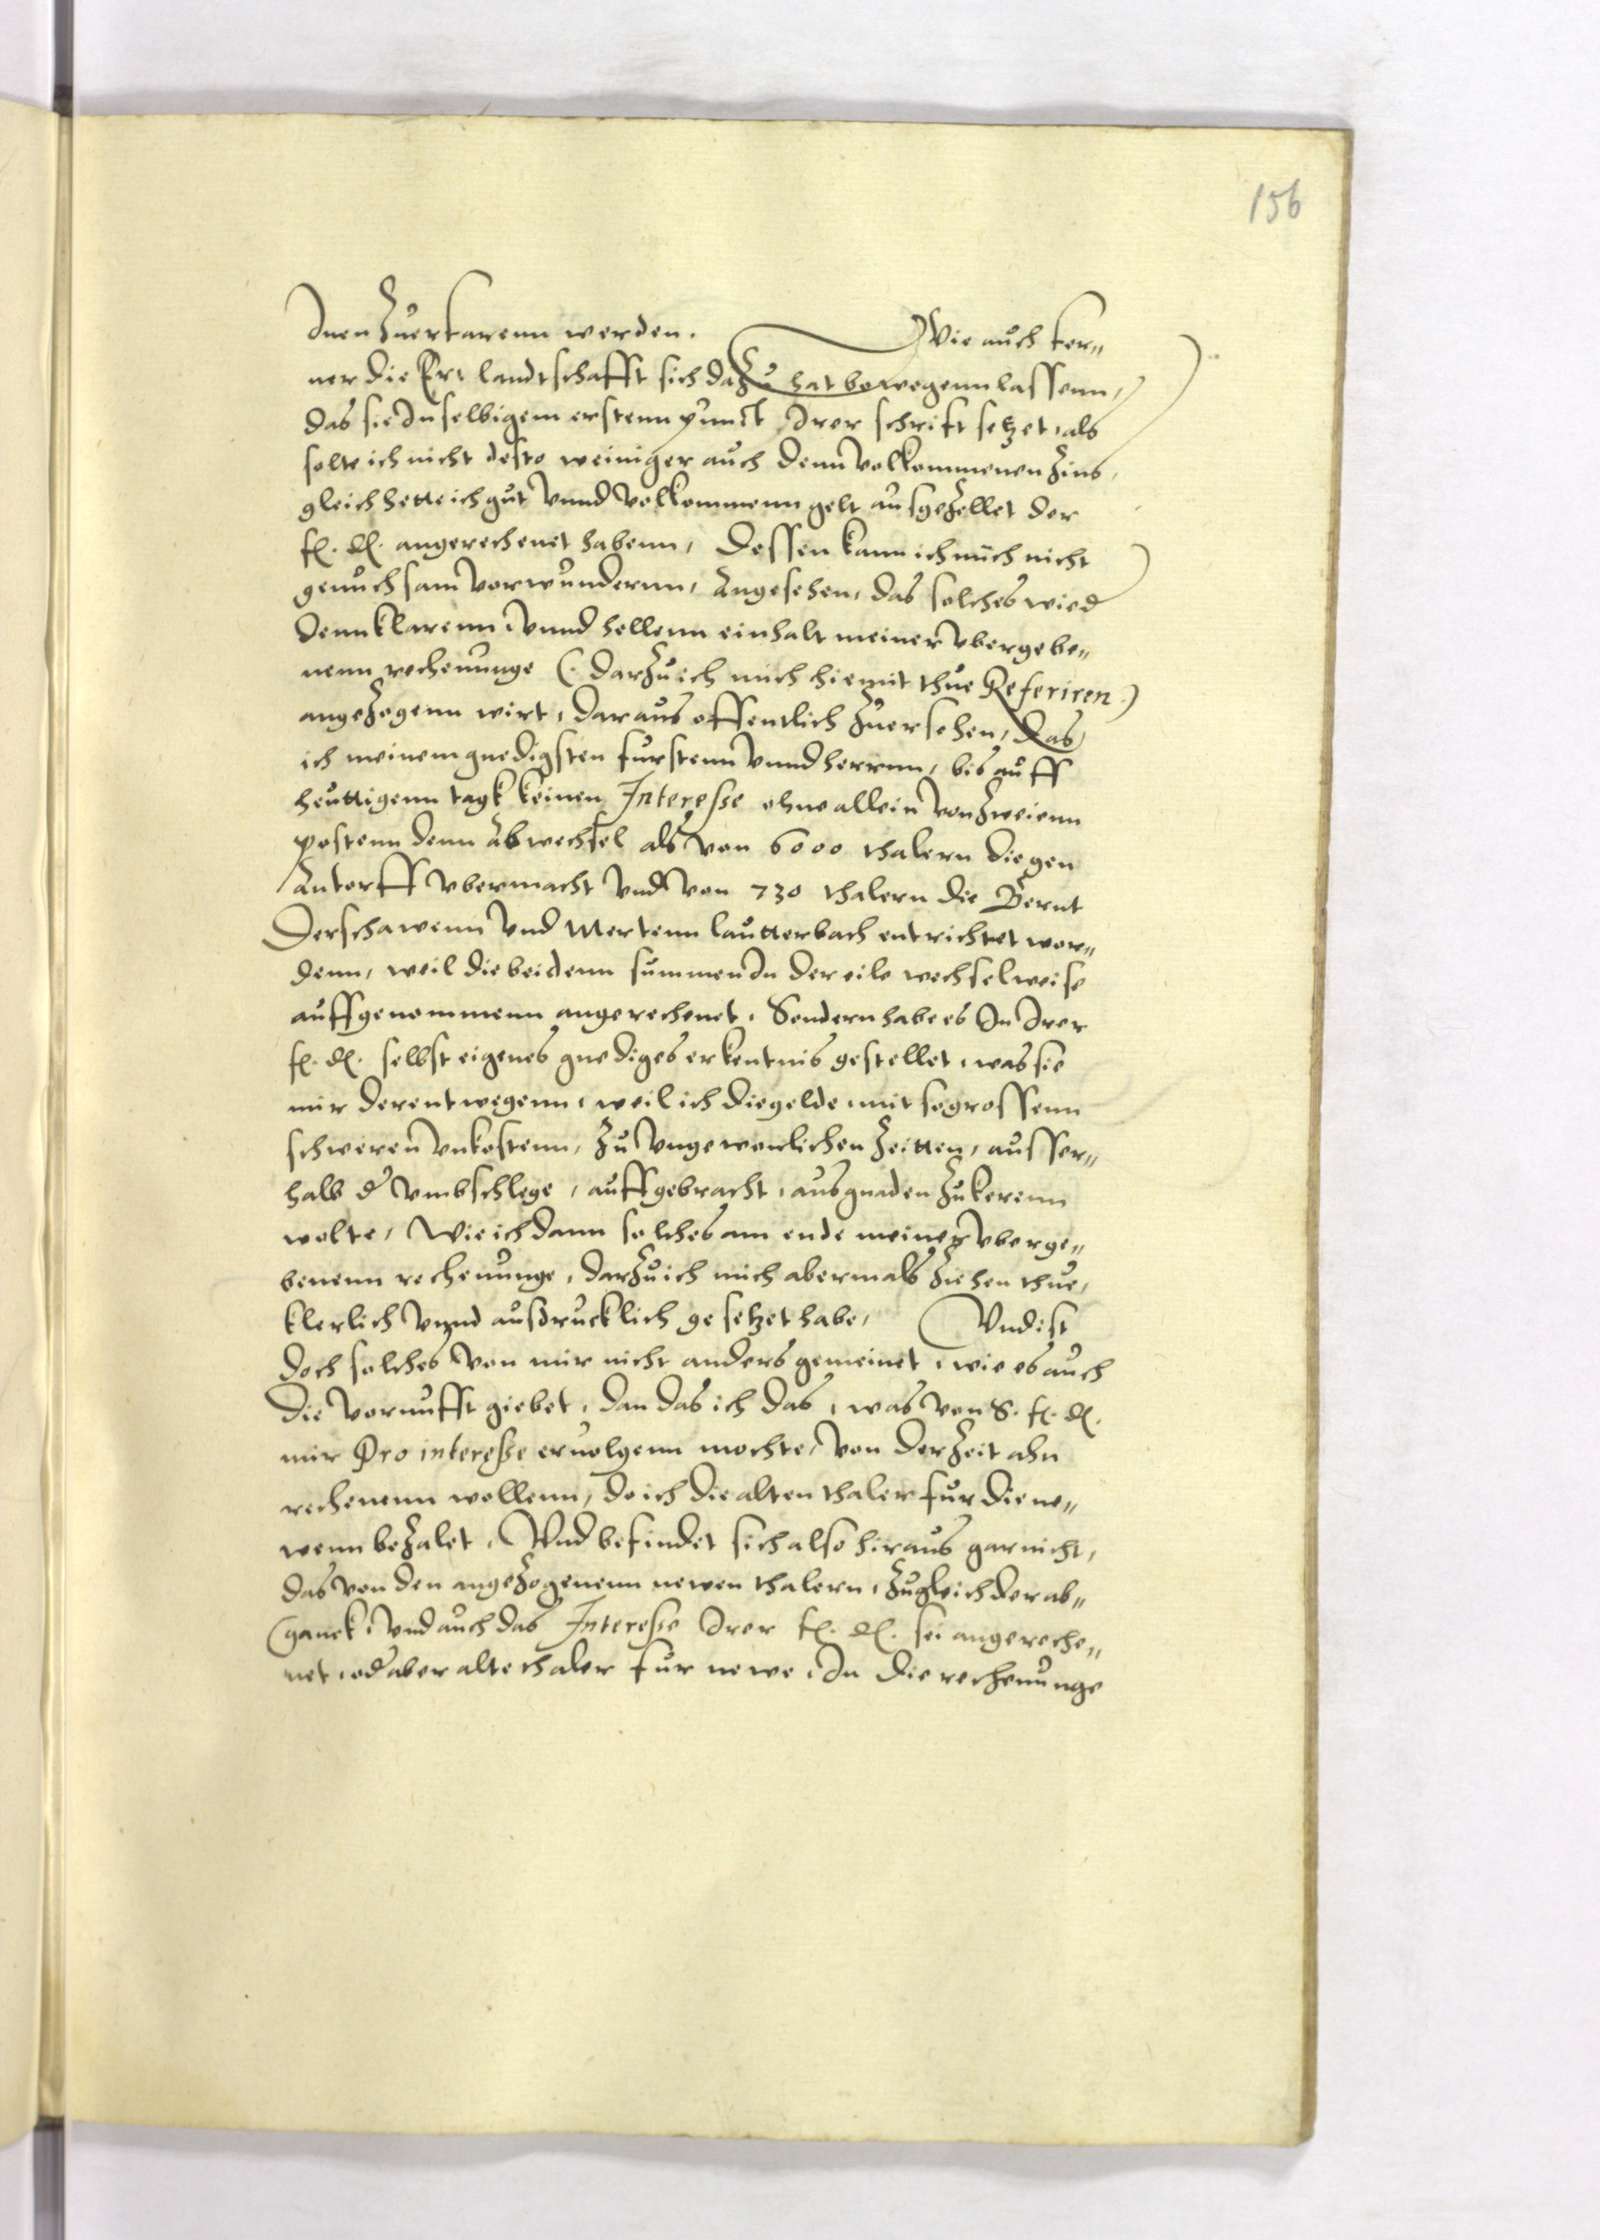 156
Inen Zuerkarenn werden. Wie auch fer„
ner die Ers. landtschafft sich dazu hat bewegenn lassenn,
das sie In selbigem erstenn punct Irer schrift setzet, als
solte ich nicht desto weiniger auch denn volkommenen Zins,
gleich hette ich gut vnnd volkommenn gelt ausgezellet der
f. d. angerechenet habenn, Dessen kann ich mich nicht
genuchsam vorwundernn, Angesehen, das solches wied
denn klarenn, vnnd hellenn einhalt meiner vbergebe„
nenn rechenunge (. darzu ich mich hiemit thue Referiren .)
angezogenn wirt, daraus offentlich Zuersehen, das
ich meinem gnedigsten furstenn vnnd herrnn, bis auff
heuttigenn tagk keinen Interesse ohne allein von Zweienn
postenn denn Abwechsel als von 6000 thalern die gen
Antorff vbermacht vnd von 730 thalern die Bernt
Derschawenn vnd Mertenn lautterbach entrichtet wor„
denn, weil die beidenn summen In der eile wechselweise
auffgenommenn angerechenet, Sondern habe es In Irer
f. d. selbst eigenes gnediges erkentnis gestellet, was sie
mir derentwegenn, weil ich die gelde mit so grossenn
schweren vnkostenn, Zu vngewonlichen Zeitten, ausser„
halb d vmbschlege, auffgebracht, aus gnaden Zukerenn
wolte, Wie ich dann solches am ende meiner vberge„
benenn rechenunge, darzu ich mich abermals Ziehen thue,
klerlich vnnd ausdrucklich gesetzet habe, Vnd ist
doch solches von mir nicht anders gemeinet, wie es auch
die vornufft giebet, dan das ich das, was von S. f. d.
mir Pro interesse eruolgenn mochte, von der Zeit ahn
rechenenn wollenn, do ich die alten thaler fur die ne„
wenn bezalet, Vnd befindet sich also hiraus gar nicht,
das von den angezogenenn newen thalern, Zugleich der ab„
ganck, vnd auch das Interesse Irer f. d. sei angereche„
net, od aber alte thaler fur newe, In die rechenunge